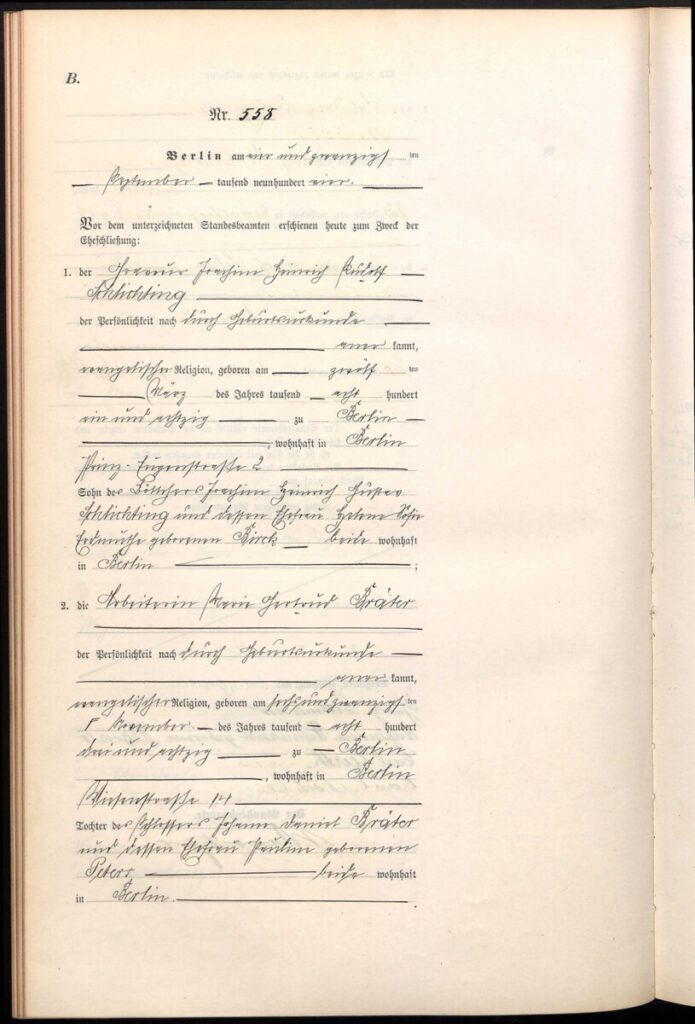 B.
Nr. 558
Berlin am vier und zwanzigsten
September tausend neunhundert vier.
Vor dem unterzeichneten Standesbeamten erschienen heute zum Zweck der
Eheschließung:
1. der Graveur Joachim Heinrich Rudolf
Schlichting
der Persönlichkeit nach durch Geburtsurkunde
anerkannt,
evangelischer Religion, geboren am zwölften
März des Jahres tausend acht hundert
ein und achtzig zu Berlin
, wohnhaft in Berlin
Prinz-Eugenstraße 2
Sohn des Böttchers Joachim Heinrich Gustav
Schlichting und dessen Ehefrau Helene Sofie
Erdmuthe geborenen Birck beide wohnhaft
in Berlin ;
2. die Arbeiterin Marie Gertrud Kräter
der Persönlichkeit nach durch Geburtsurkunde
anerkannt,
evangelischer Religion, geboren am sechsundzwanzigsten
November des Jahres tausend acht hundert
drei und achtzig zu Berlin
, wohnhaft in Berlin
Wiesenstraße 14
Tochter des Schlossers Johann Daniel Kräter
und dessen Ehefrau Pauline geborenen
Peters beide wohnhaft
in Berlin.